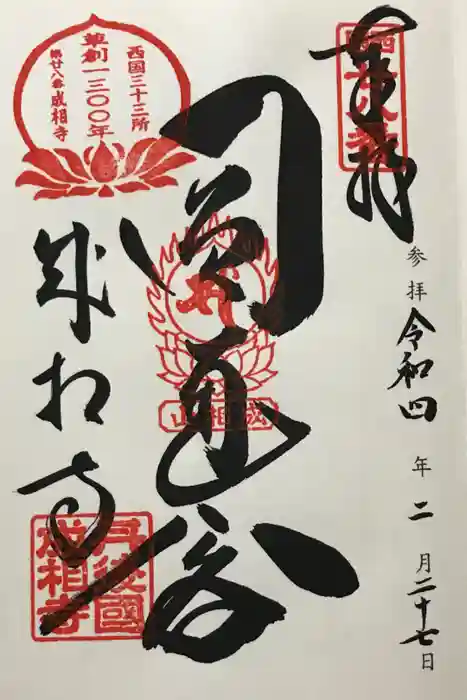 奉拝
西国廿八番
参拝 令和四年二月二十七日
圓通殿
成相山
西国三十三所
草創一三〇〇年
第廿八番成相寺
成相寺
丹後國
成相寺